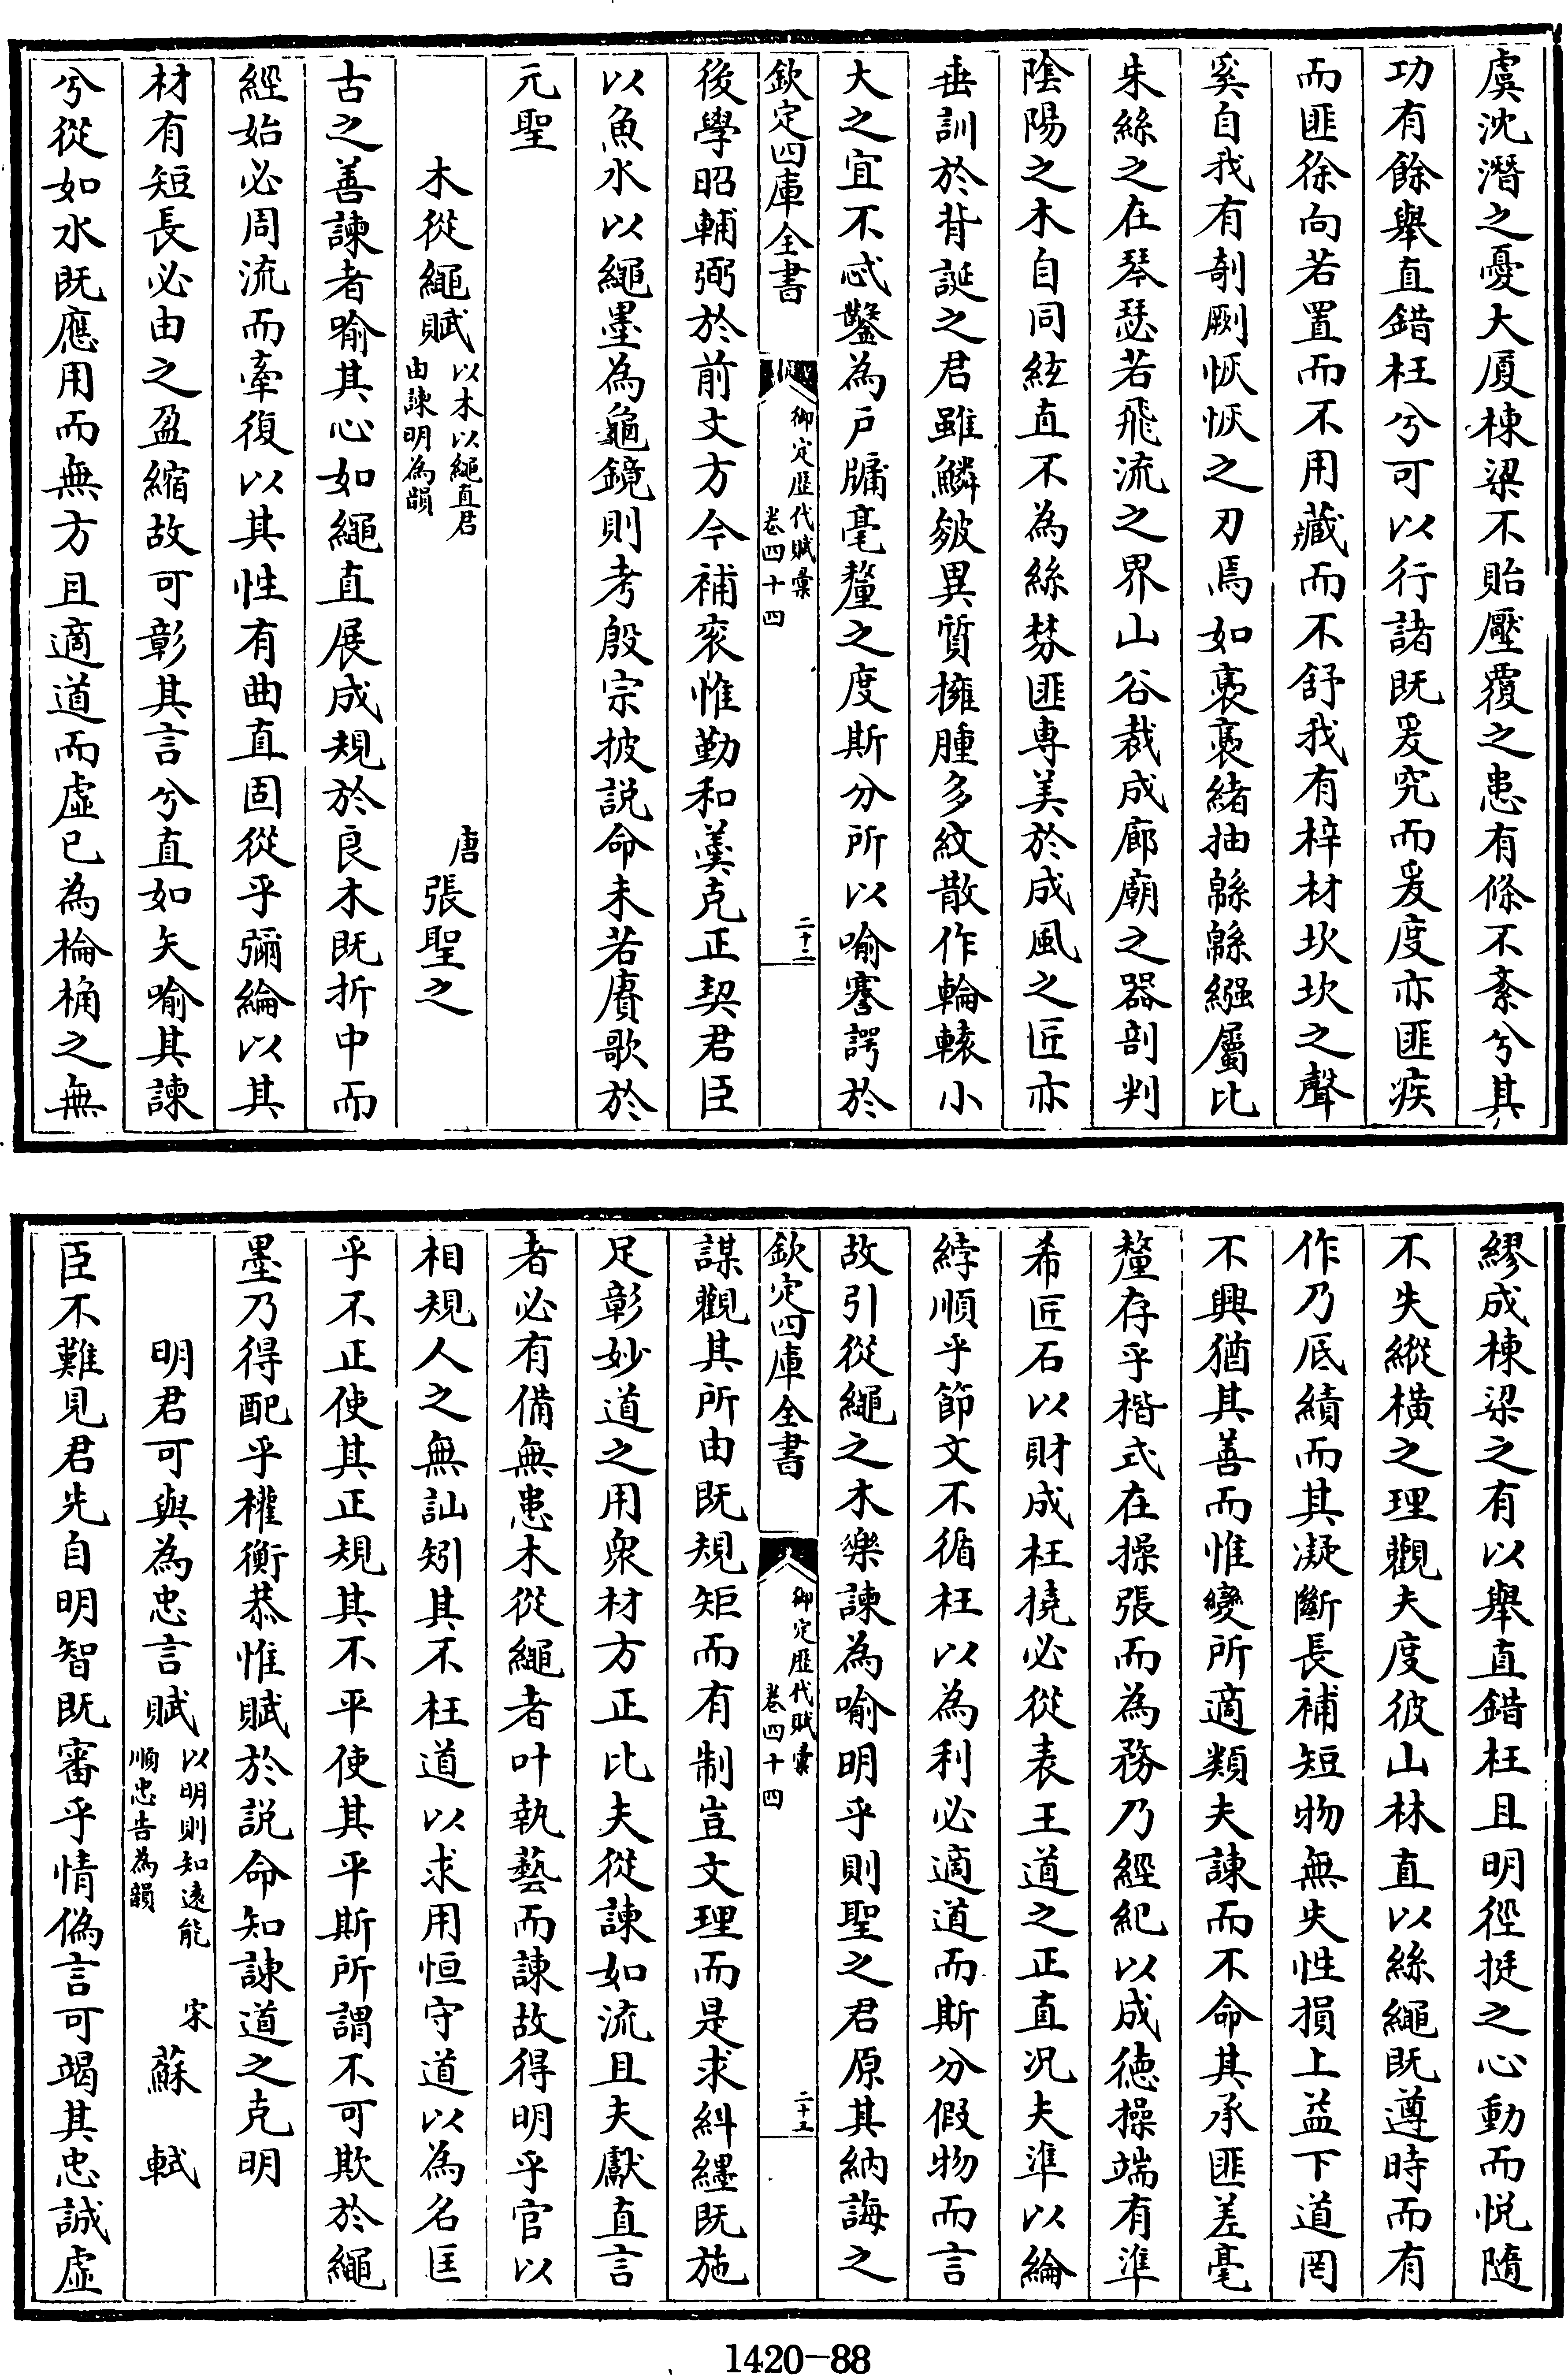 虞沈潛之憂大厦棟梁不貽壓覆之患有條不紊兮其
功有餘舉直錯枉兮可以行諸既爰究而爰度亦匪疾
而匪徐向若置而不用藏而不舒我有梓材坎坎之聲
奚自我有剞劂恢恢之刃焉如裹裹緒抽緜緜繦屬比
朱絲之在琴瑟若飛流之界山谷裁成廊廟之器剖判
陰陽之木自同絃直不為絲棼匪專美於成風之匠亦
垂訓於背誕之君雖鱗皴異質擁腫多紋散作輪轅小
大之宜不忒鑿為戶牖毫釐之度斯分所以喻謇諤於
欽定四庫全書
御定歷代賦彙
卷四十四
二十二
後學昭輔弼於前文方今補衮惟勤和羹克正契君臣
以魚水以繩墨為龜鏡則考殷宗披説命未若賡歌於
元聖
木從繩賦
以木以繩直君
由諫明為韻
唐
張聖之
古之善諫者喻其心如繩直展成規於良木既折中而
經始必周流而牽復以其性有曲直固從乎彌綸以其
材有短長必由之盈縮故可彰其言兮直如矢喻其諫
兮從如水既應用而無方且適道而虛已為棆桷之無
繆成棟梁之有以舉直錯枉且明徑挺之心動而悦隨
不失縱橫之理觀夫度彼山林直以絲繩既遵時而有
作乃厎績而其凝斷長補短物無失性損上益下道罔
不興猶其善而惟變所適類夫諫而不命其承匪差毫
釐存乎楷式在操張而為務乃經紀以成德操端有準
希匠石以財成枉撓必從表王道之正直况夫準以綸
綍順乎節文不循枉以為利必適道而斯分假物而言
故引從繩之木樂諫為喻明乎則聖之君原其納誨之
欽定四庫全書
御定歷代賦彙
卷四十四
二十三
謀觀其所由既規矩而有制豈文理而是求糾纆既施
足彰妙道之用衆材方正比夫從諫如流且夫獻直言
者必有備無患木從繩者叶執藝而諫故得明乎官以
相規人之無訕矧其不枉道以求用恒守道以為名匡
乎不正使其正規其不平使其平斯所謂不可欺於繩
墨乃得配乎權衡恭惟賦於説命知諫道之克明
明君可與為忠言賦
以明則知遠能
順忠告為韻
宋
蘇軾
臣不難見君先自明智既審乎情偽言可竭其忠誠虛
1420-88